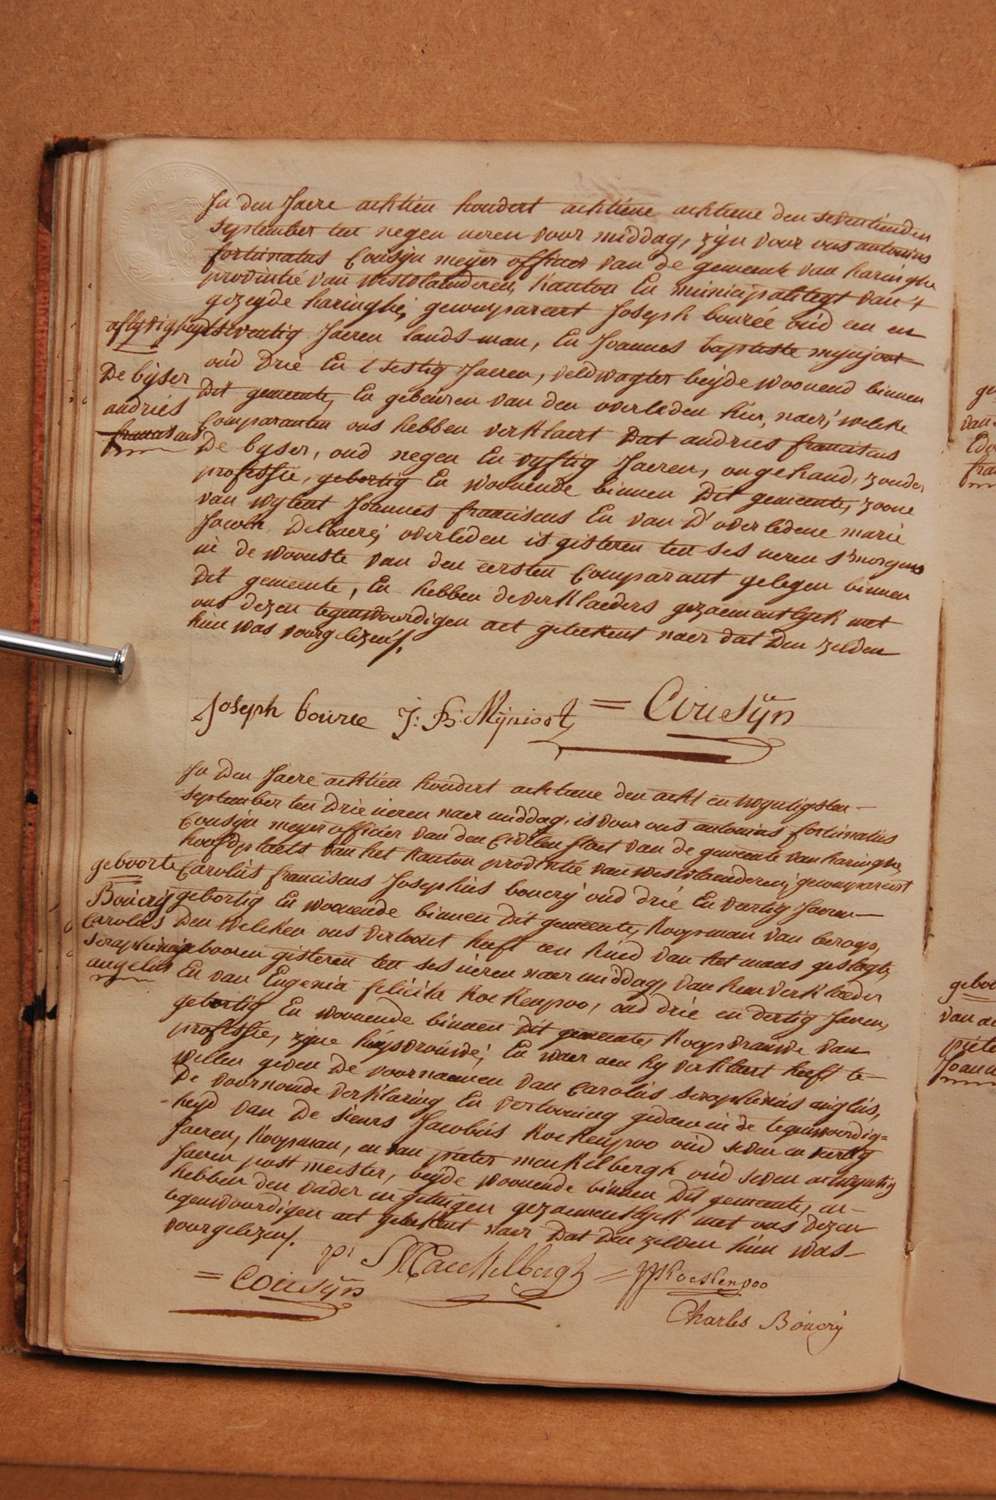 In den Jaere achtien hondert achtiene achtiene den seventienden
september ten negen ueren voor middag, zijn voor ons antonius
fortunatus Cousijn meyer officier van de gemeente van haringhe
provintie van westvlaenderen, kanton En municipaliteyt van 't
gezeyde haringhe, gecompareert Joseph bourée oud een en
tseventig Jaeren lands-man, En Joannes baptiste mynjoot
oud Drie En tsestig Jaeren, veldwagter beyde woonend binnen
Dit gemeente, En gebeuren van den overleden hier naer, welcke
Comparanten ons hebben verklaert Dat andries franciscus
De byser, oud negen En vyftig Jaeren, ongehand, zonder
professie, gebortig En woonende binnen Dit gemeente, zoone
van wylent Joannes franciscus En van D'overledene marie
Jacoba Delbaere, overleden is gisteren ten ses ueren s'morgens
in de wooniste van den eersten Comparant gelegen binnen
Dit gemeente, En hebben de verklaeders gezaementlyck met
ons dezen tegenwoordigen act geteekent naer dat Den zelden
hun was voorgelezen.
aflyvighyd
De byser
andries
franciscus
Joseph bouree J: B: Mynioot = Cousyn
In den Jaere achtien hondert achtiene den acht en twyntigsten
september ten Drie ueren naer middag, is voor ons antonius fortunatus
Cousijn meyer officier van den Civilen staet van de gemeente van haringhe,
hoofdplaets van het kanton provintie van westvlaenderen, gecompareert
Carolus franciscus Josephus boucry oud drie En veertig Jaeren
gebortig En woonende binnen Dit gemeente, koopman van beroep,
Den welcken ons vertoont heeft een kind van het mans geslagte,
geboren gisteren ten ses ueren naer middag, van hem verklaeder
En van Eugenia felicita Kockenpoo, oud drie en dertig Jaeren,
gebortig En woonende binnen Dit gemeente, koopvrauwe van
professie, zijne huysvrouwe; En waer aen hy verklaert heeft te
willen geven De voornaemen van Carolus seraphinus angelus,
De voornoemde verklaring En vertooning gedaen in de tegenwoordig-
heyd van De sieurs Jacobus Kockenpoo oud seven en veertig
Jaeren, koopman, en van pieter mackelbergh oud seven en twyntig
Jaeren post meister, beyde woonende binnen Dit gemeente, en
hebben den vader en getuigen gezaementlyck met ons Dezen
tegenwoordigen act geteekent naer Dat Den zelden hun was
voorgelezen.
geboorte
Boucry
Carolus
seraphinus
angelus
pr Mackelbergh = JKockenpoo
= Cousyn
Charles Boucry